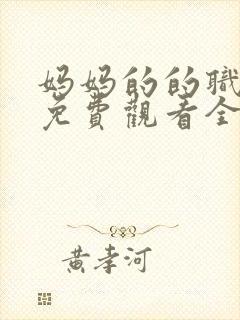 妈妈的的職
免費觀看全
黄孝河